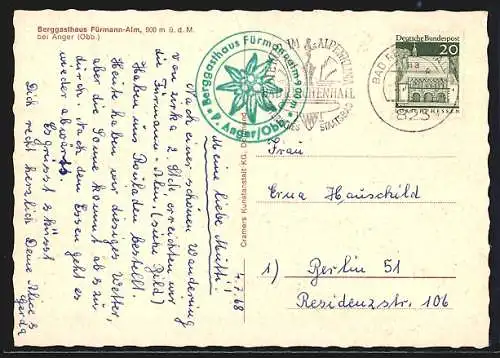 Berggasthaus Fürmann-Alm, 900 m ü. d. M.
bei Anger (Obb.)
4.7.68
Meine liebe Mutti!
Nach einer schönen Wanderung
von zirka 2 Std. erreichten wir
die Fürmann-Alm. (siehe Bild)
Haben uns Rouladen bestellt.
Heute haben wir diesiges Wetter,
die Sonne kommt ab & zu
durch. Nach dem Essen geht es
wieder abwärts.
Es grüsst & küsst
Dich recht herzlich Deine Alice &
Gerda
Berggasthaus Fürmannalm 900 m
P. Anger/Obb.
Cramers Kunstanstalt KG,
IM ALPENKLIMA
BAD REICHENHALL
Deutsche Bundespost
20
LORSCH/HESSEN
BAD
Frau
Erna Hauschild
1) Berlin 51
Residenzstr. 106